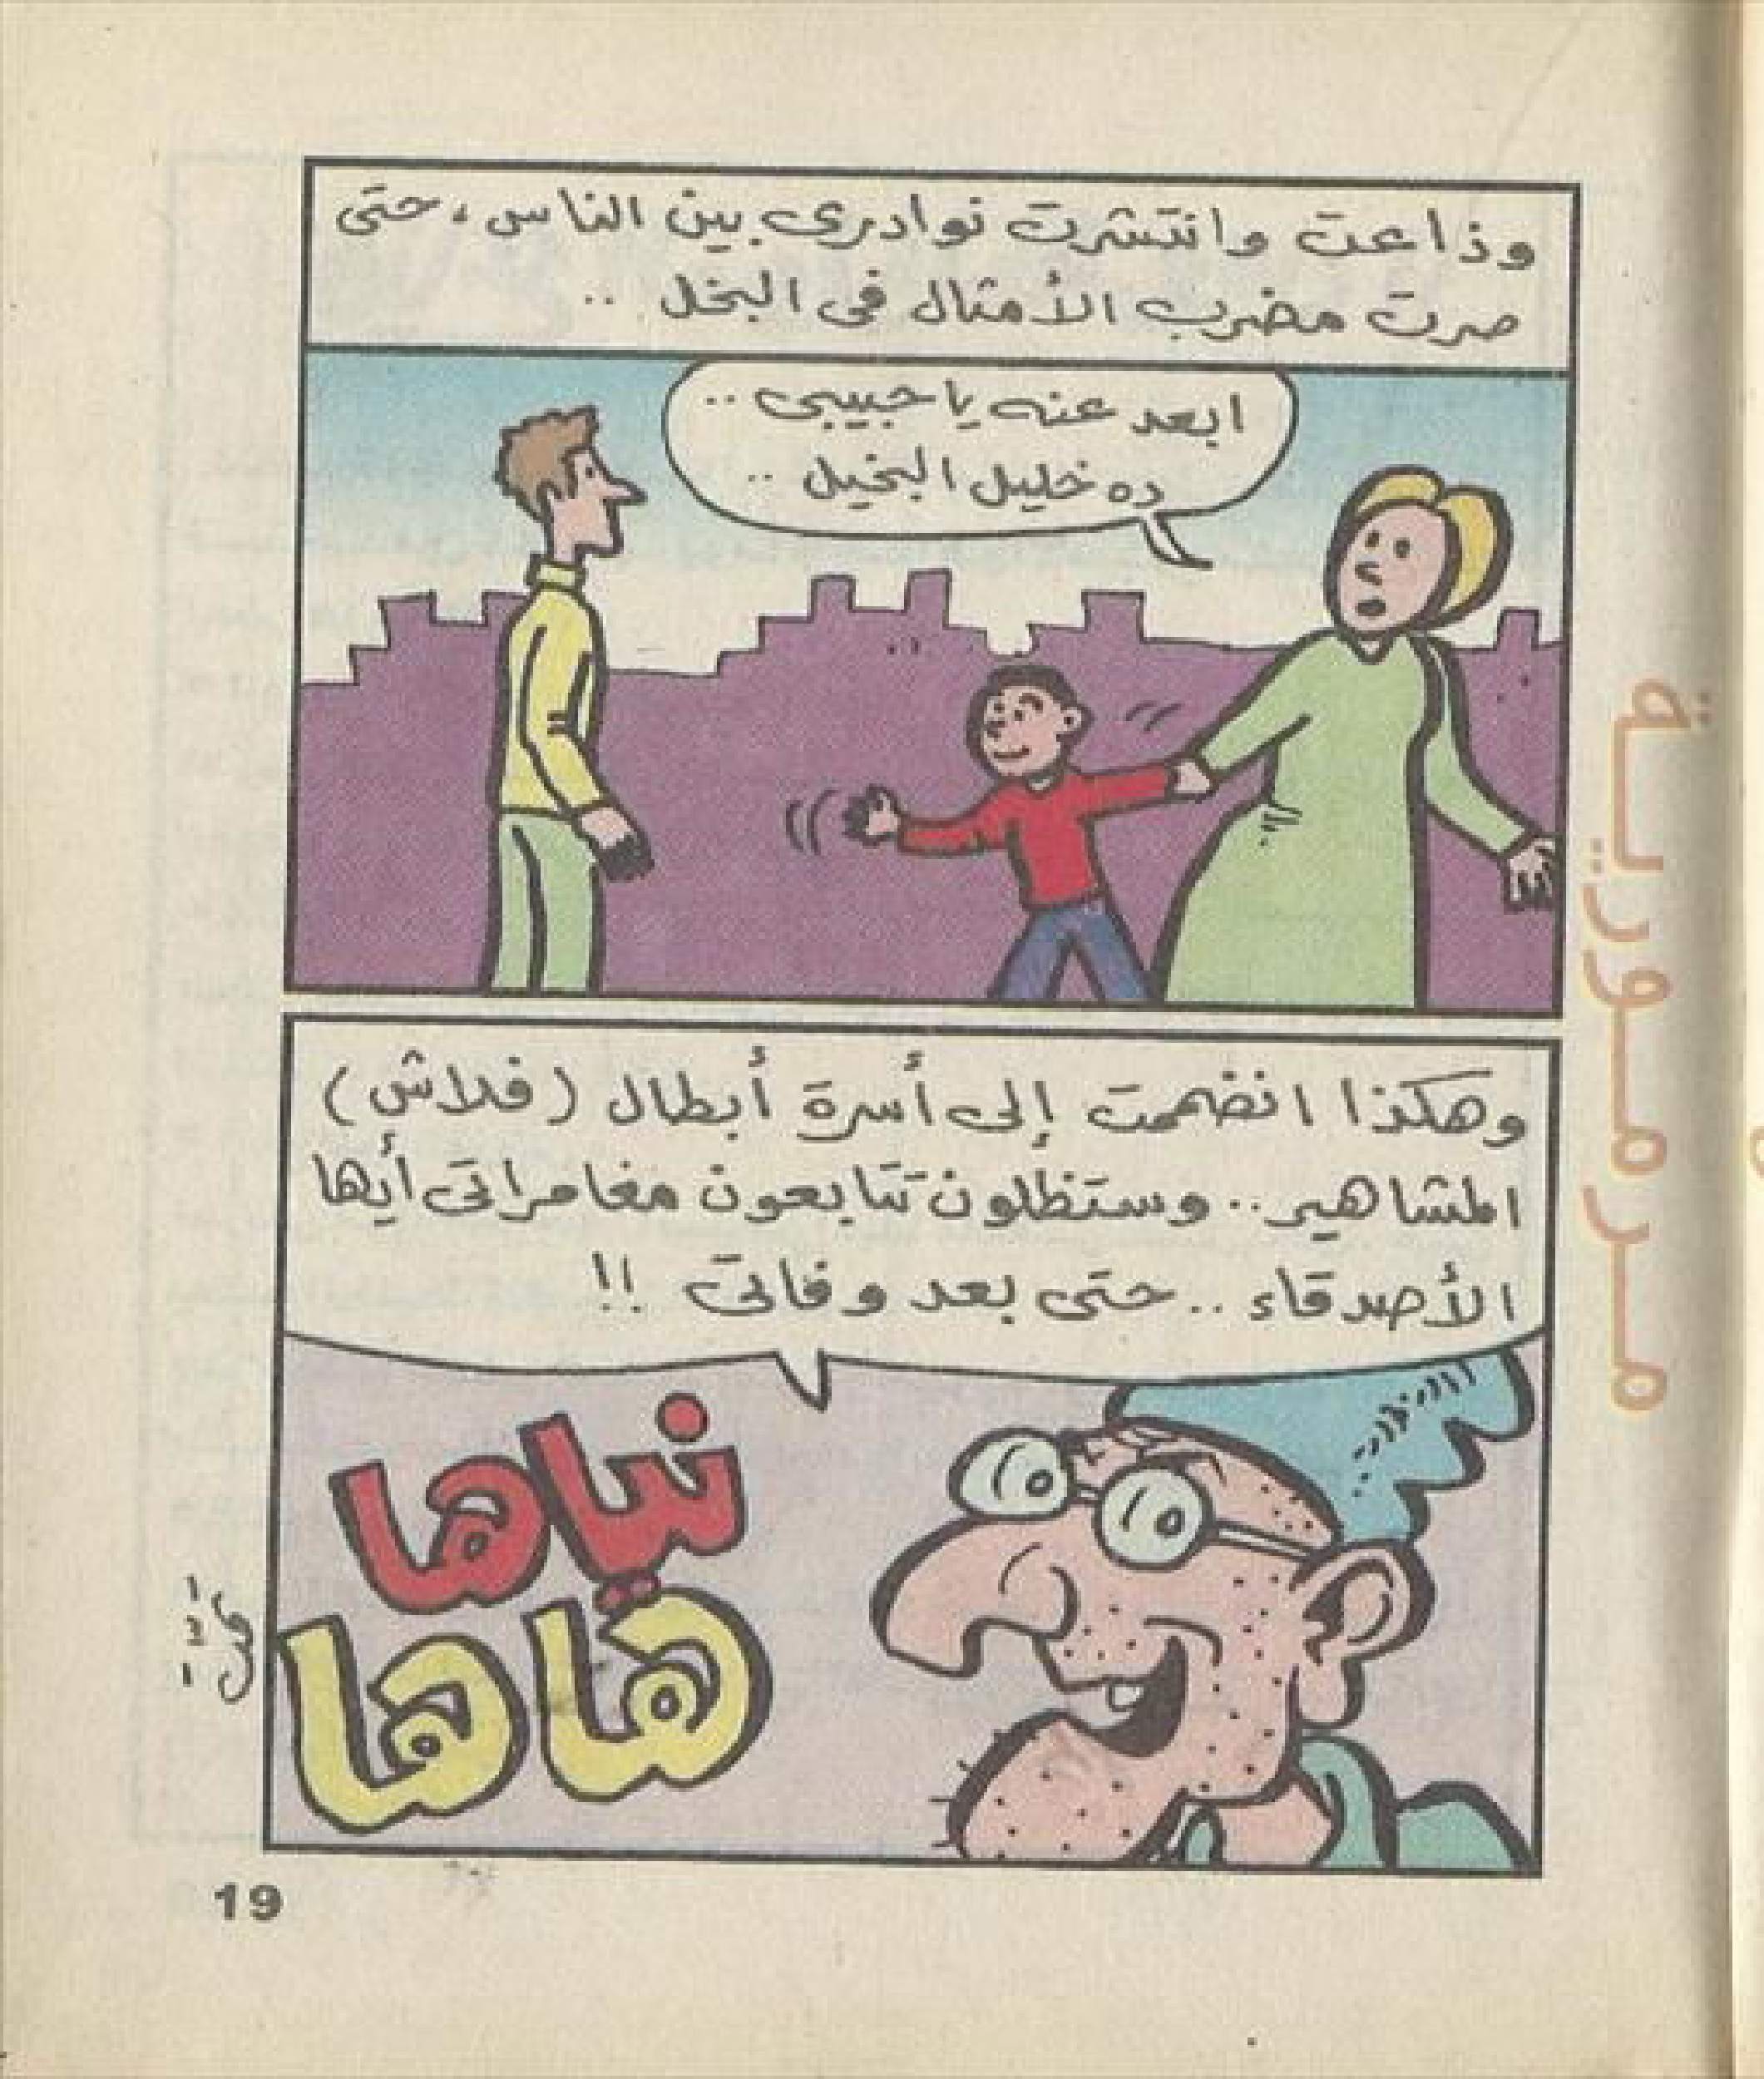 وذاعت وانتشرت نوادرى بين الناس ، حتى
صرت مضرب الأمثال فى البخل ..
ابعد عنه يا حبيبى ..
ده خليل البخيل ..
وهكذا انضممت إلى أسرة أبطال (فلاش)
المشاهير .. وستظلون تتابعون مغامراتى أيها
الأصدقاء .. حتى بعد وفاتى !!
نياها
هاها
مرمورية
19